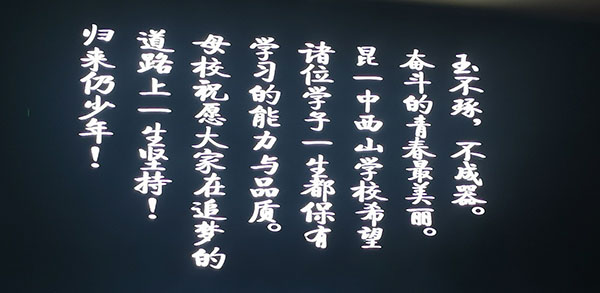 玉不琢，不成器。
奋斗的青春最美丽。
昆一中西山学校希望
诸位学子一生都保有
学习的能力与品质。
母校祝愿大家在追梦的
道路上一生坚持！
归来仍少年！